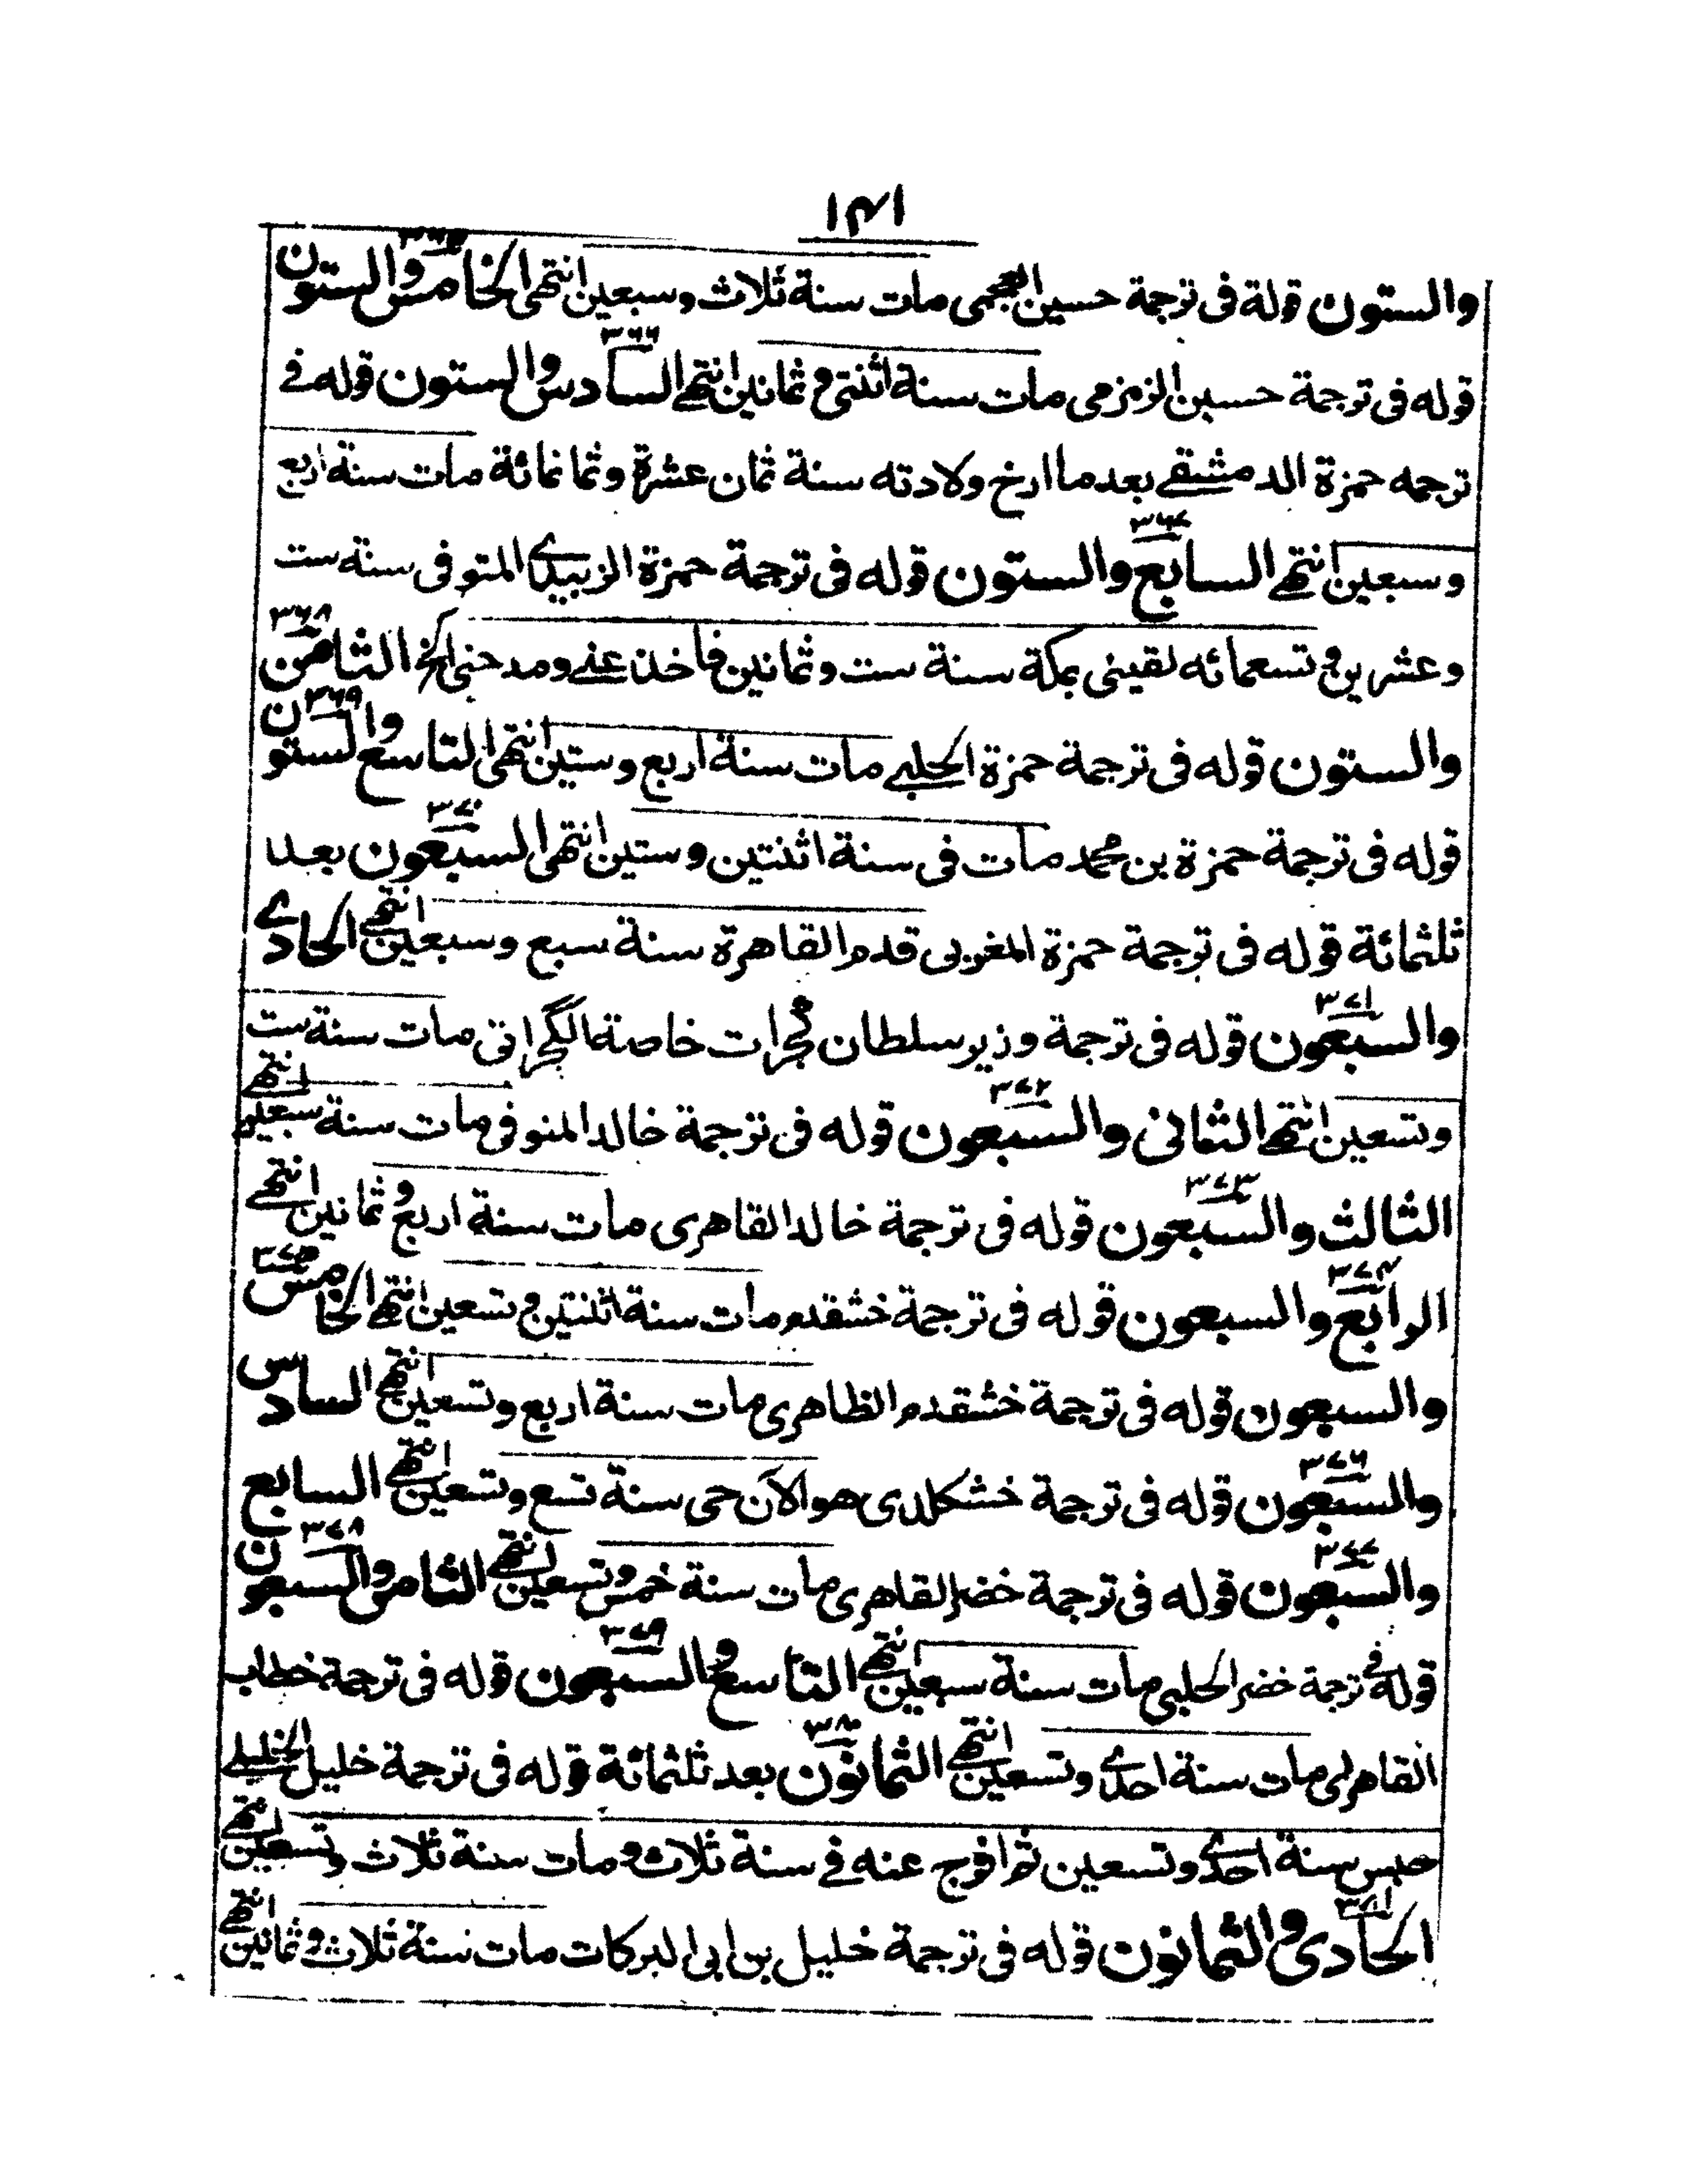 ١٤١
والستون قوله فى ترجمة حسين العجمى مات سنة ثلاث وسبعين انتهى الخامس والستون ٣٦٥
قوله فى ترجمة حسين الزمزمى مات سنة اثنتى وثمانين انتهى السادس والستون ٣٦٦ قوله فى
ترجمه حمزة الدمشقى بعد ما ارخ ولادته سنة ثمان عشرة وثمانمائة مات سنة اربع
وسبعين انتهى السابع والستون ٣٦٧ قوله فى ترجمة حمزة الزبيدى المتوفى سنة ست
وعشرين وتسعمائه لقينى بمكة سنة ست وثمانين فاخذ عنى ومدحنى الخ الثامن ٣٦٨
والستون قوله فى ترجمة حمزة الحلبى مات سنة اربع وستين انتهى التاسع والستون ٣٦٩
قوله فى ترجمة حمزة بن محمد مات فى سنة اثنتين وستين انتهى السبعون ٣٧٠ بعد
ثلثمائة قوله فى ترجمة حمزة المغربى قدم القاهرة سنة سبع وسبعين انتهى الحادى
والسبعون ٣٧١ قوله فى ترجمة وزير سلطان گجرات خاصة الگجراتى مات سنة ست
وتسعين انتهى الثانى والسبعون ٣٧٢ قوله فى ترجمة خالد المنوفى مات سنة سبعين انتهى
الثالث والسبعون ٣٧٣ قوله فى ترجمة خالد القاهرى مات سنة اربع وثمانين انتهى
الرابع والسبعون ٣٧٤ قوله فى ترجمة خشقدم مات سنة اثنتين وتسعين انتهى الخامس ٣٧٥
والسبعون قوله فى ترجمة خشقدم الظاهرى مات سنة اربع وتسعين انتهى السادس
والسبعون ٣٧٦ قوله فى ترجمة خشكلدى هو الآن حى سنة تسع وتسعين انتهى السابع
والسبعون ٣٧٧ قوله فى ترجمة خضر القاهرى مات سنة خمس وتسعين انتهى الثامن والسبعون ٣٧٨
قوله فى ترجمة خضر الحلبى مات سنة سبعين انتهى التاسع والسبعون ٣٧٩ قوله فى ترجمة خطاب
القاهرى مات سنة احدى وتسعين انتهى الثمانون ٣٨٠ بعد ثلثمائة قوله فى ترجمة خليل الخليلى
حبس سنة احدى وتسعين ثم افرج عنه فى سنة ثلاث ومات سنة ثلاث وتسعين انتهى
الحادى والثمانون ٣٨١ قوله فى ترجمة خليل بن ابى البركات مات سنة ثلاث وثمانين انتهى